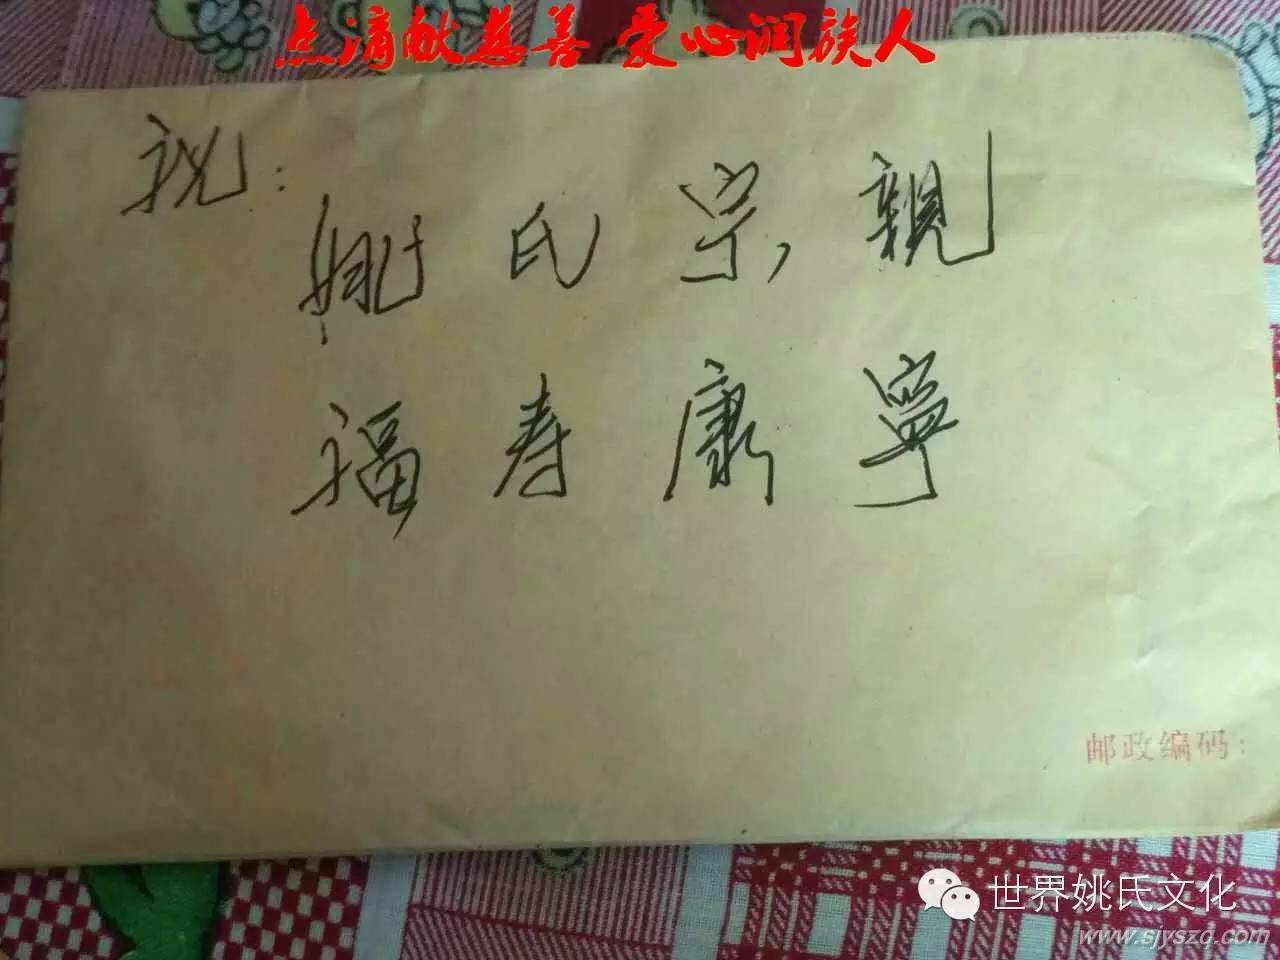 点滴献慈善 爱心润族人
祝：
姚氏宗親
福寿康寧
邮政编码：
世界姚氏文化
www.sjyszq.com